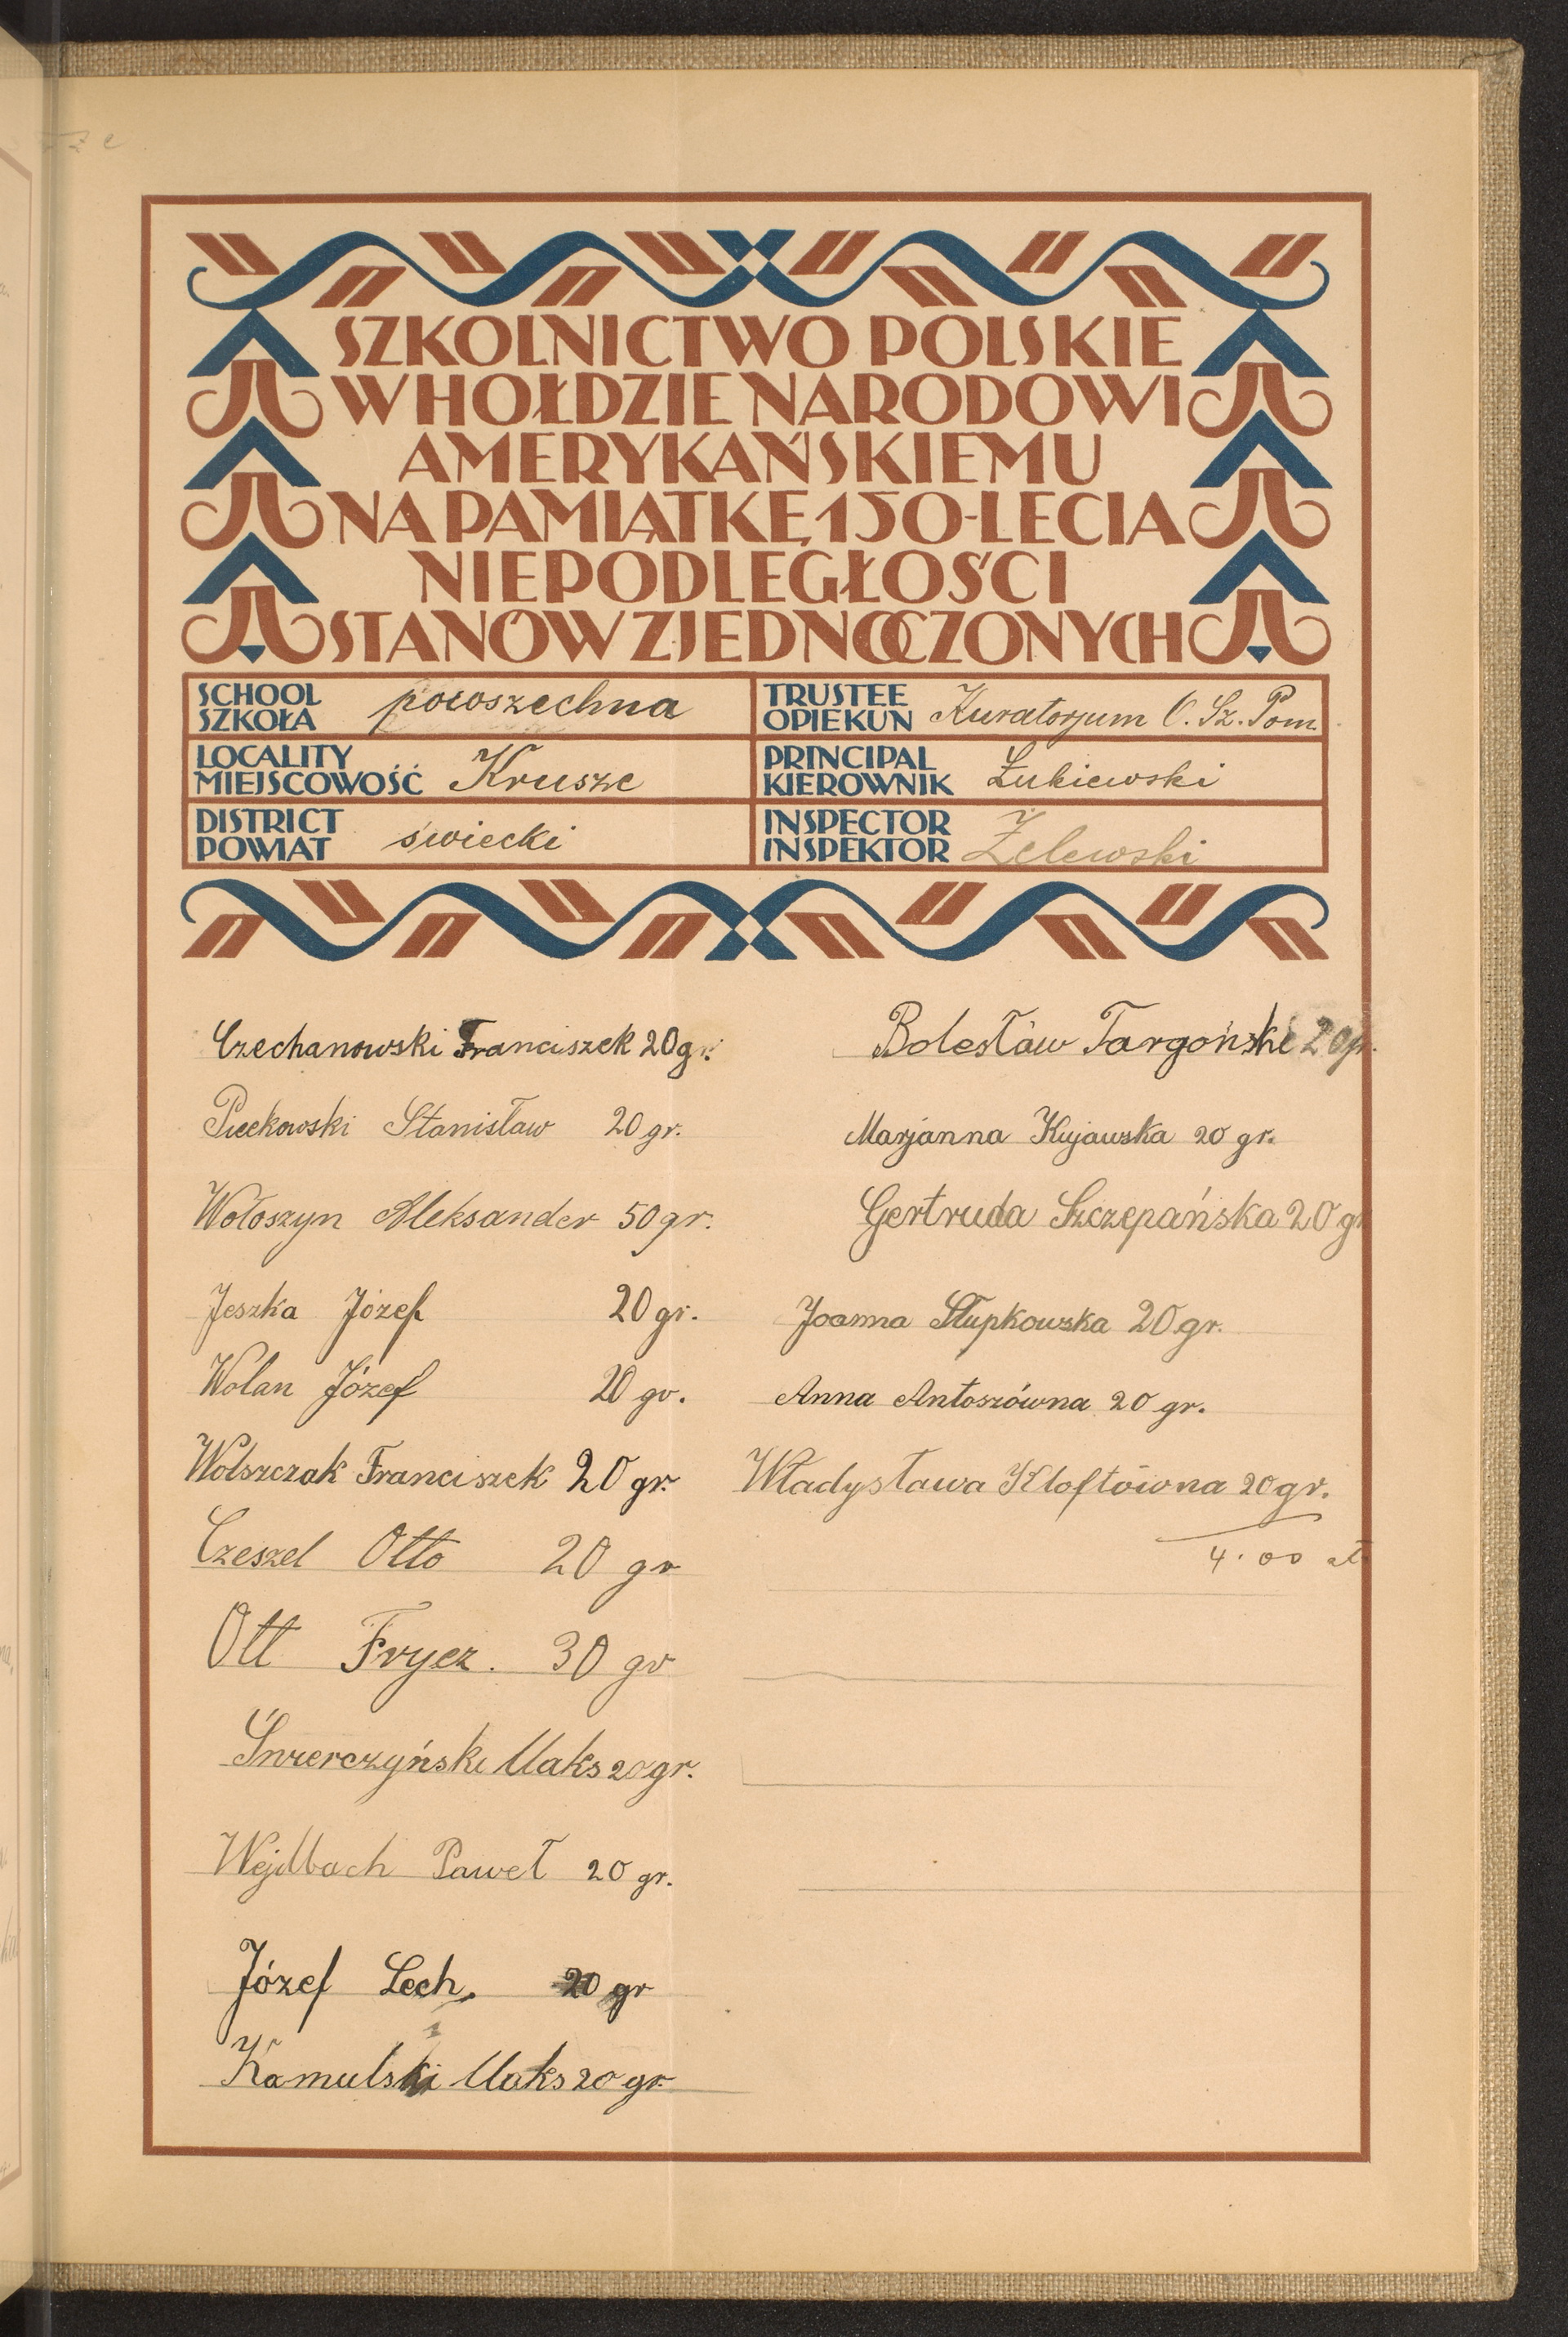 SZKOLNICTWO POLSKIE
W HOŁDZIE NARODOWI
AMERYKAŃSKIEMU
NA PAMIĄTKĘ 150-LECIA
NIEPODLEGŁOŚCI
STANÓW ZJEDNOCZONYCH
SCHOOL
SZKOŁA powszechna
TRUSTEE
OPIEKUN Kuratorjum O. Sz. Pom.
LOCALITY
MIEJSCOWOŚĆ Krusze
PRINCIPAL
KIEROWNIK Łukiewski
DISTRICT
POWIAT świecki
INSPECTOR
INSPEKTOR Żelewski
Czechanowski Franciszek 20 gr.
Pieckowski Stanisław 20 gr.
Wołoszyn Aleksander 50 gr.
Jeszka Józef 20 gr.
Wolan Józef 20 gr.
Wolszczak Franciszek 20 gr.
Czeszel Otto 20 gr
Ott Frycz. 30 gr
Świerczyński Maks 20 gr.
Wejdbach Paweł 20 gr.
Józef Lech, 20 gr
Kamulski Maks 20 gr.
Bolesław Targoński 20 gr.
Marjanna Kujawska 20 gr.
Gertruda Szczepańska 20 gr
Joanna Słupkowska 20 gr.
Anna Antoszówna 20 gr.
Władysława Kloftówna 20 gr.
4.00 zł